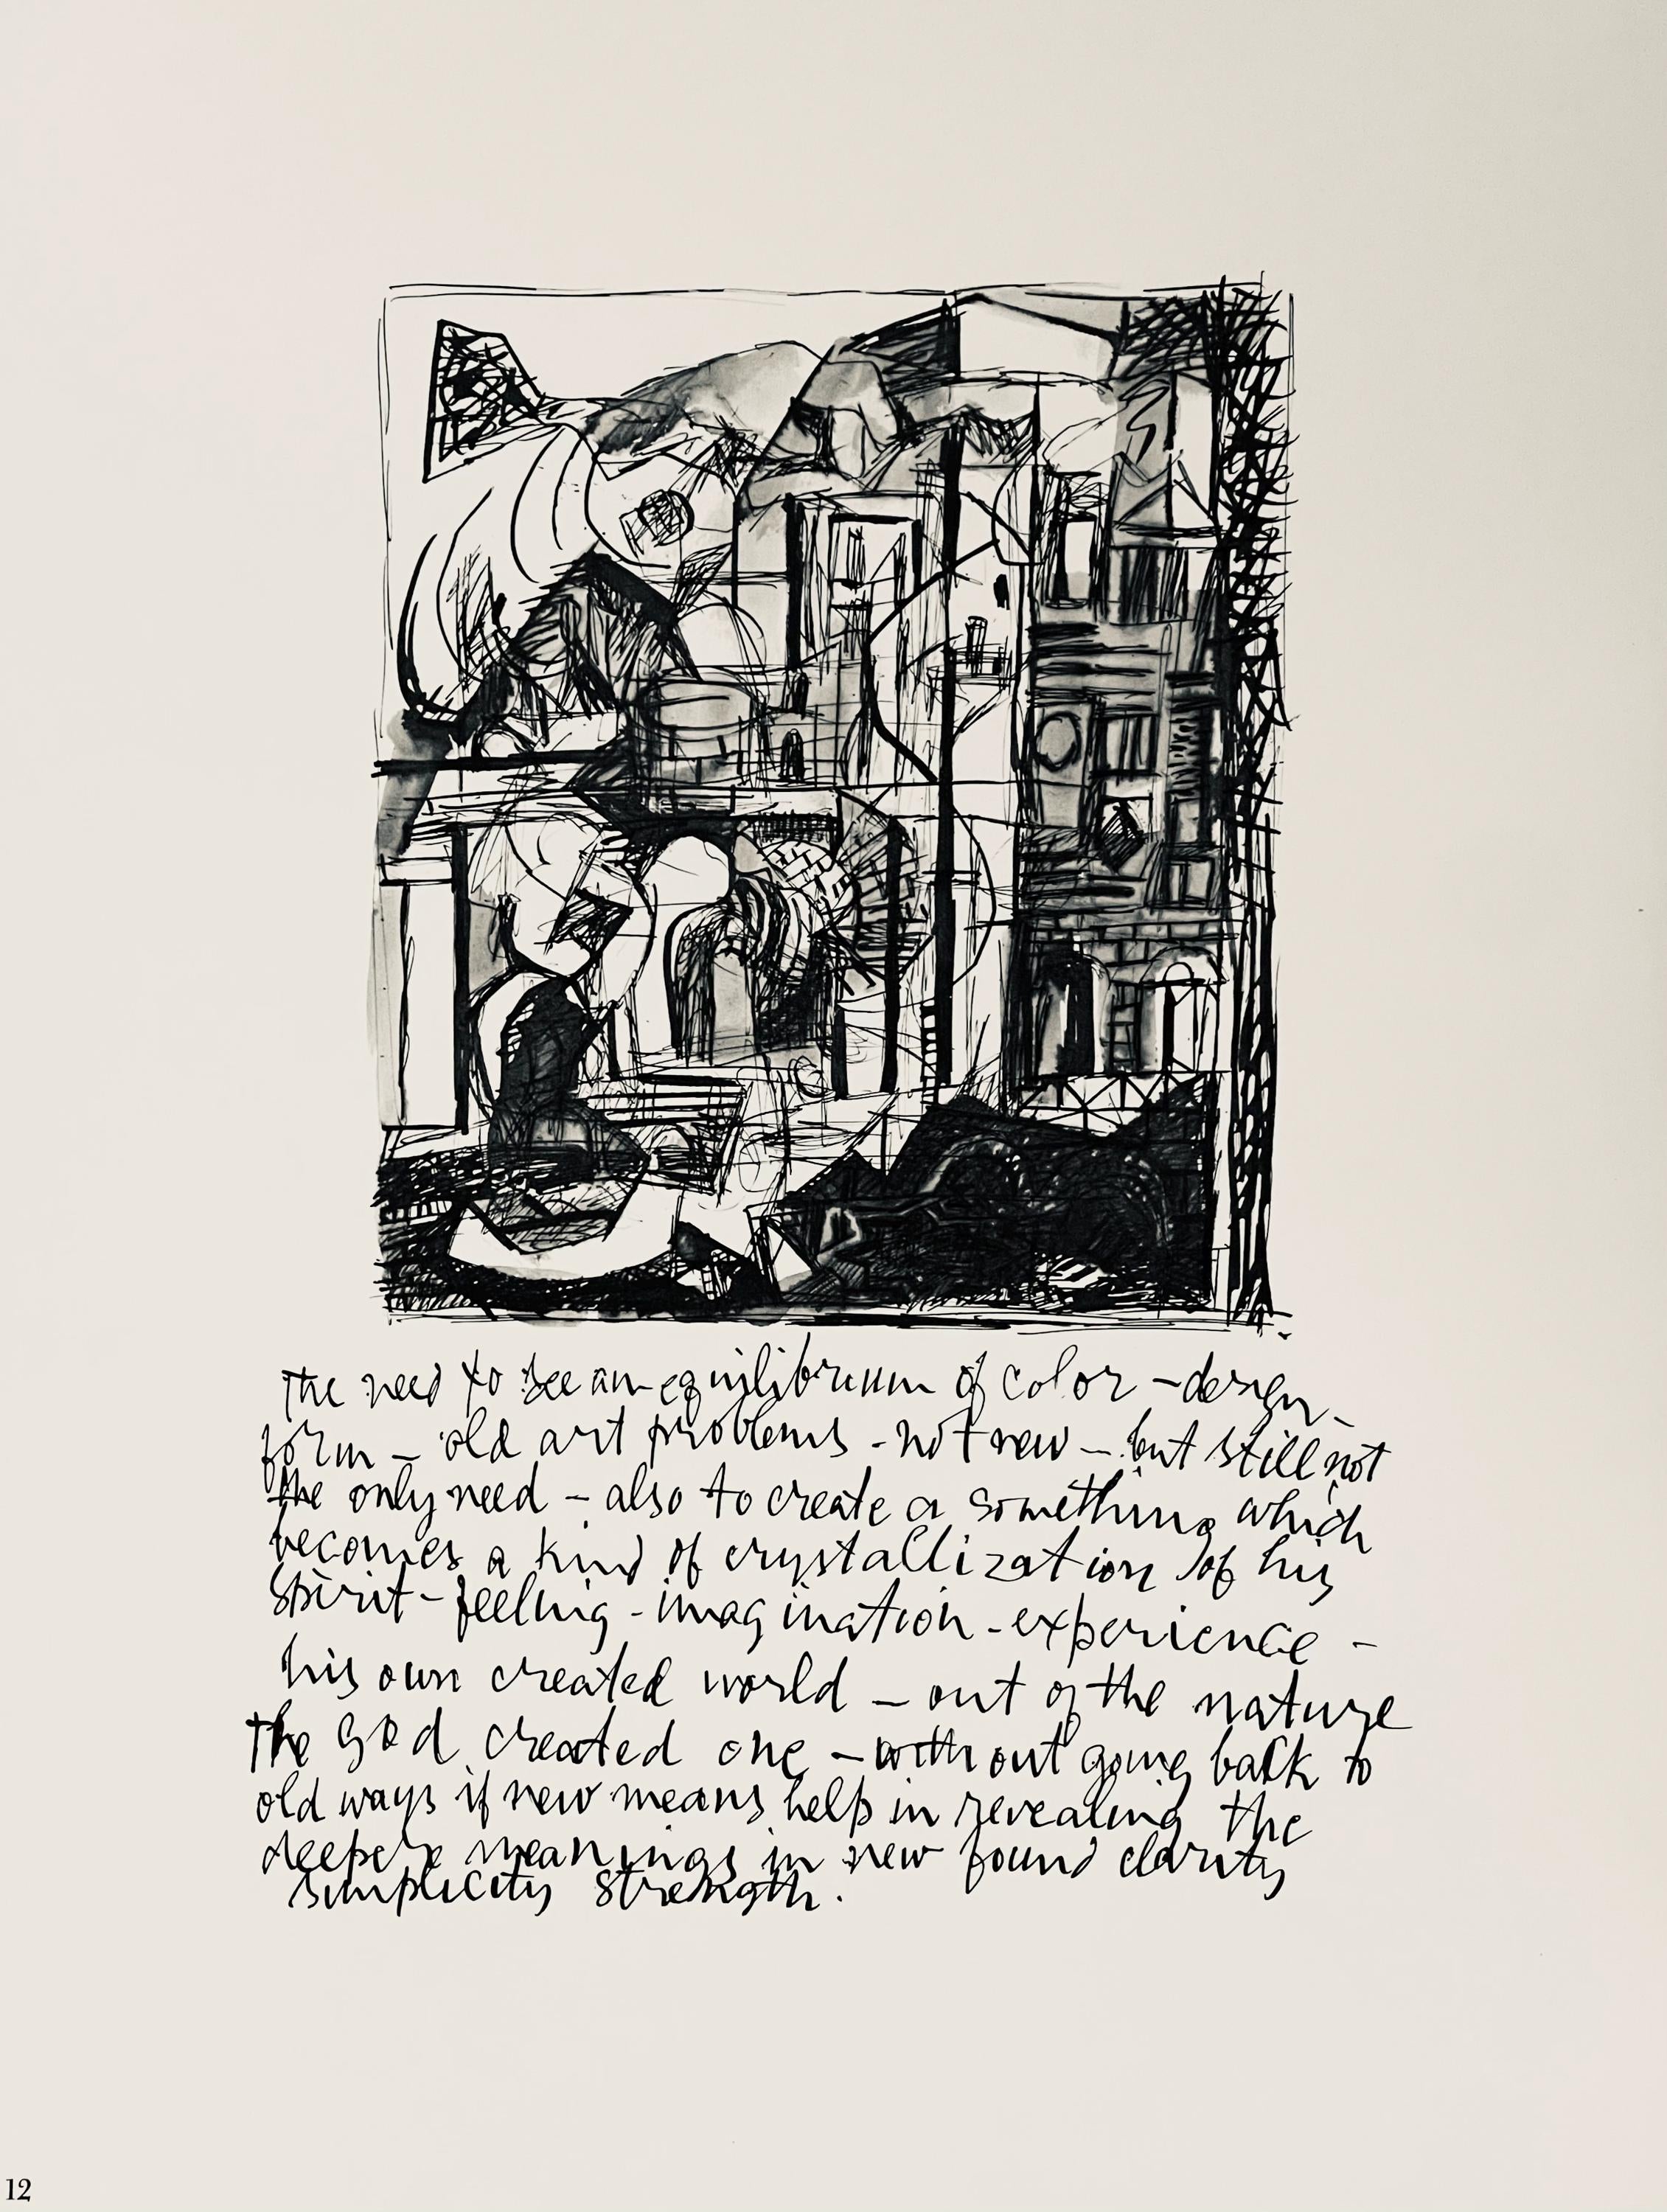 The need to see an equilibrium of color - design -
form - old art problems - not new - but still not
the only need - also to create a something which
becomes a kind of crystallization of his
spirit - feeling - imagination - experience -
his own created world - out of the nature
the God created one - without going back to
old ways if new means help in revealing the
deeper meanings in new found clarity
simplicity strength.
12